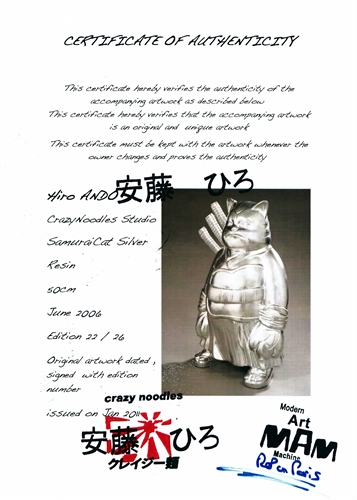 CERTIFICATE OF AUTHENTICITY
This certificate hereby verifies the authenticity of the
accompanying artwork as described below
This certificate hereby verifies that the accompanying artwork
is an original and unique artwork
This certificate must be kept with the artwork whenever the
owner changes and proves the authenticity
Hiro ANDO 安藤 ひろ
CrazyNoodles Studio
SamuraiCat Silver
Resin
50cm
June 2006
Edition 22 / 26
Original artwork dated,
signed with edition
number
issued on Jan 2011
crazy noodles
安藤 ひろ
クレイジー麺
Modern
Art
MAM
Machine